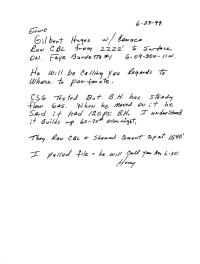 6-29-99
Ernie
Gilbert Hayes w/ Conoco
Ran CBL from 2222' to Surface
ON. Faye Burdette #1 6-09-35n-11w.
He will be Calling you Regards to
Where to perforate.
CSG Tested But B.H. has steady
flow Gas. When he moved on it he
Said it had 120 PSI B.H. I understand
it builds up 60-70# overnight,
They Ran CBL & Showed Cement Top at 1540'
I pulled file - he will Call you Am 6-30